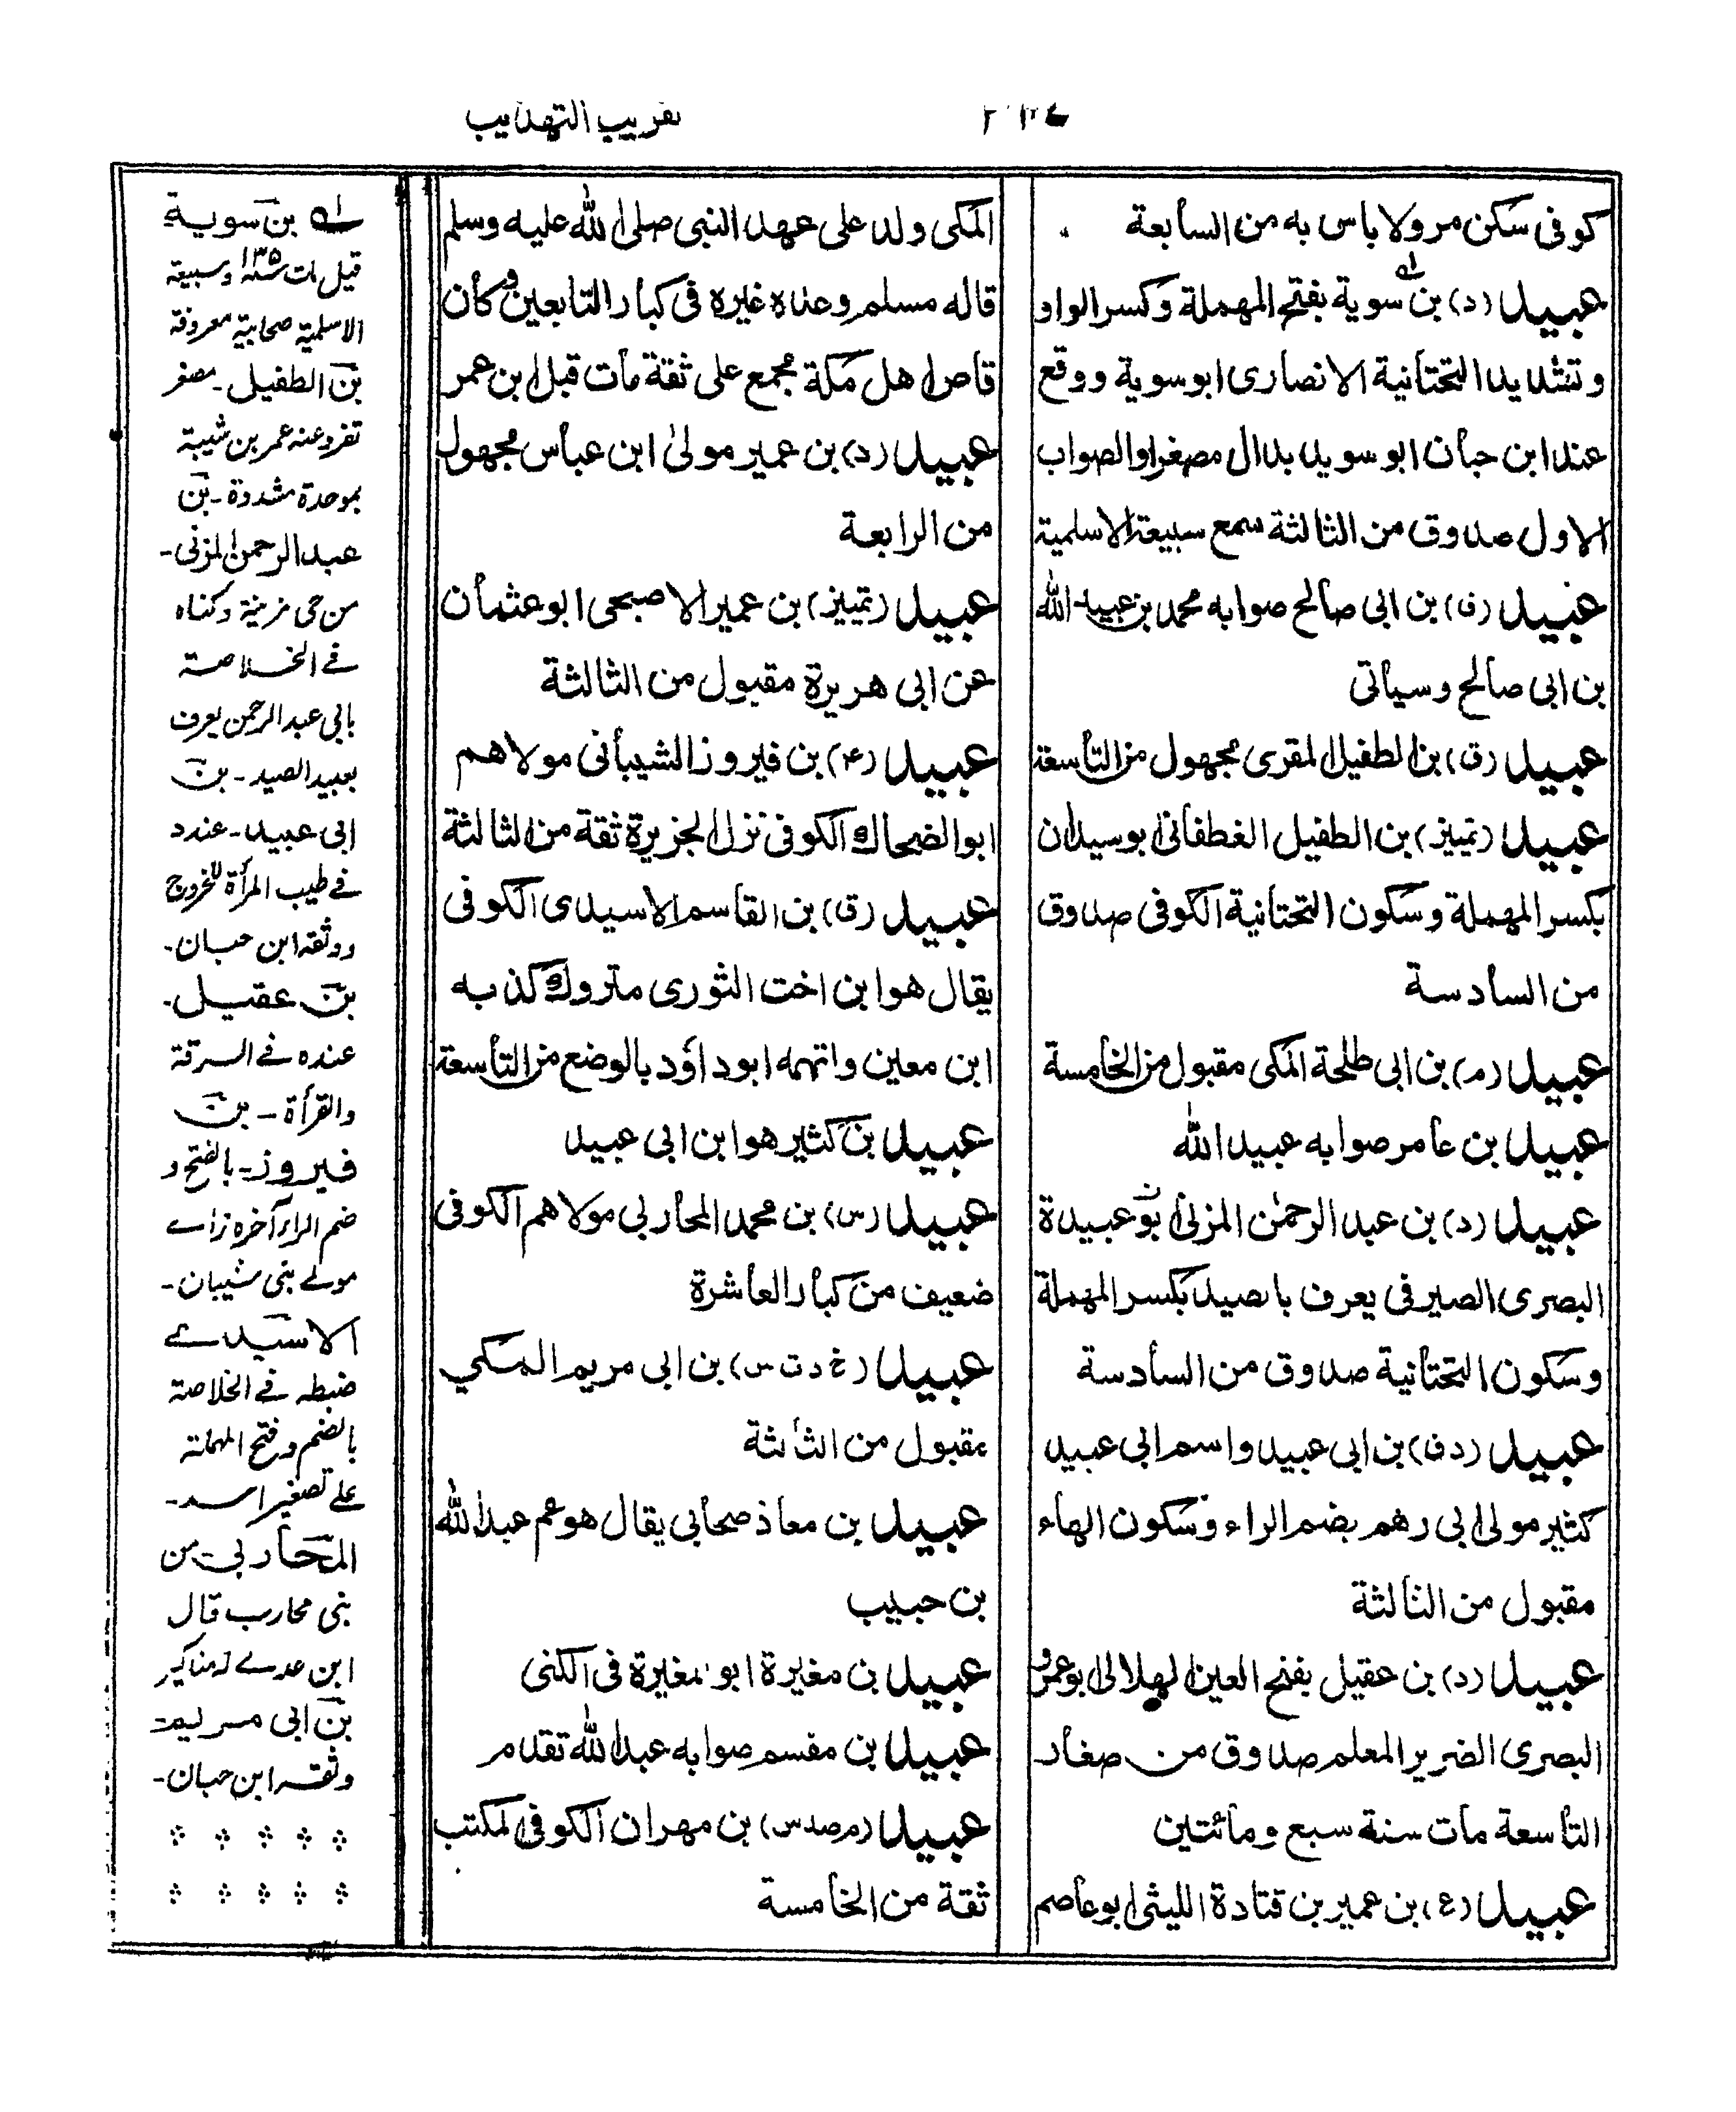 تقريب التهذيب
كوفى سكن مرو لا باس به من السابعة
عبيد (د) بن سوية بفتح المهملة وكسر الواو
وتشديد التحتانية الانصارى ابو سوية ووقع
عند ابن حبان ابو سويد بدال مصغرا والصواب
الاول صدوق من الثالثة سمع سبيعة الاسلمية
عبيد (ق) بن ابى صالح صوابه محمد بن عبيد الله
بن ابى صالح وسياتى
عبيد (ق) بن الطفيل المقرى مجهول من التاسعة
عبيد (تمييز) بن الطفيل الغطفانى ابو سيدان
بكسر المهملة وسكون التحتانية الكوفى صدوق
من السادسة
عبيد (م) بن ابى طلحة المكى مقبول من الخامسة
عبيد بن عامر صوابه عبيد الله
عبيد (د) بن عبد الرحمٰن المزنى ابو عبيدة
البصرى الصيرفى يعرف بالصيد بكسر المهملة
وسكون التحتانية صدوق من السادسة
عبيد (د ق) بن ابى عبيد واسم ابى عبيد
كثير مولى ابى رهم بضم الراء وسكون الهاء
مقبول من الثالثة
عبيد (د) بن عقيل بفتح العين الهلالى ابو عمرو
البصرى الضرير المعلم صدوق من صغار
التاسعة مات سنة سبع ومائتين
عبيد (ع) بن عمير بن قتادة الليثى ابو عاصم
المكى ولد على عهد النبى صلى الله عليه وسلم
قاله مسلم وعده غيره فى كبار التابعين وكان
قاص اهل مكة مجمع على ثقة مات قبل ابن عمر
عبيد (د) بن عمير مولىٰ ابن عباس مجهول
من الرابعة
عبيد (تمييز) بن عمير الاصبحى ابو عثمان
عن ابى هريرة مقبول من الثالثة
عبيد (٤) بن فيروز الشيبانى مولاهم
ابو الضحاك الكوفى نزل الجزيرة ثقة من الثالثة
عبيد (ق) بن القاسم الاسيدى الكوفى
يقال هو ابن اخت الثورى متروك كذبه
ابن معين واتهمه ابو داؤد بالوضع من التاسعة
عبيد بن كثير هو ابن ابى عبيد
عبيد (س) بن محمد المحاربى مولاهم الكوفى
ضعيف من كبار العاشرة
عبيد (خ د ت س) بن ابى مريم المكي
مقبول من الثالثة
عبيد بن معاذ صحابى يقال هو عم عبد الله
بن حبيب
عبيد بن مغيرة ابو المغيرة فى الكنى
عبيد بن مقسم صوابه عبد الله تقدم
عبيد (م صد س) بن مهران الكوفى المكتب
ثقة من الخامسة
له بن سوية
قيل مات سنة ١٣٥ وسبيعة
الاسلمية صحابية معروفة
بن الطفيل - مصغر
تفرد عنه عمر بن شيبة
بموحدة مشددة - بن
عبد الرحمن المزنى -
من حى مزينة وكناه
فى الخلاصة
بابى عبد الرحمن يعرف
بعبيد الصيد - بن
ابى عبيد - عند د
فى طيب المرأة للخروج
ووثقه ابن حبان -
بن عقيل -
عنده فى السرقة
والقرأة - بن
فيروز - بالفتح و
ضم الراء آخره زاى
مولى بنى شيبان -
الاسيدى
ضبطه فى الخلاصة
بالضم وفتح المهملة
على تصغير اسد -
المحاربى من
بنى محارب قال
ابن عدى له مناكير
بن ابى مريم -
وثقه ابن حبان -